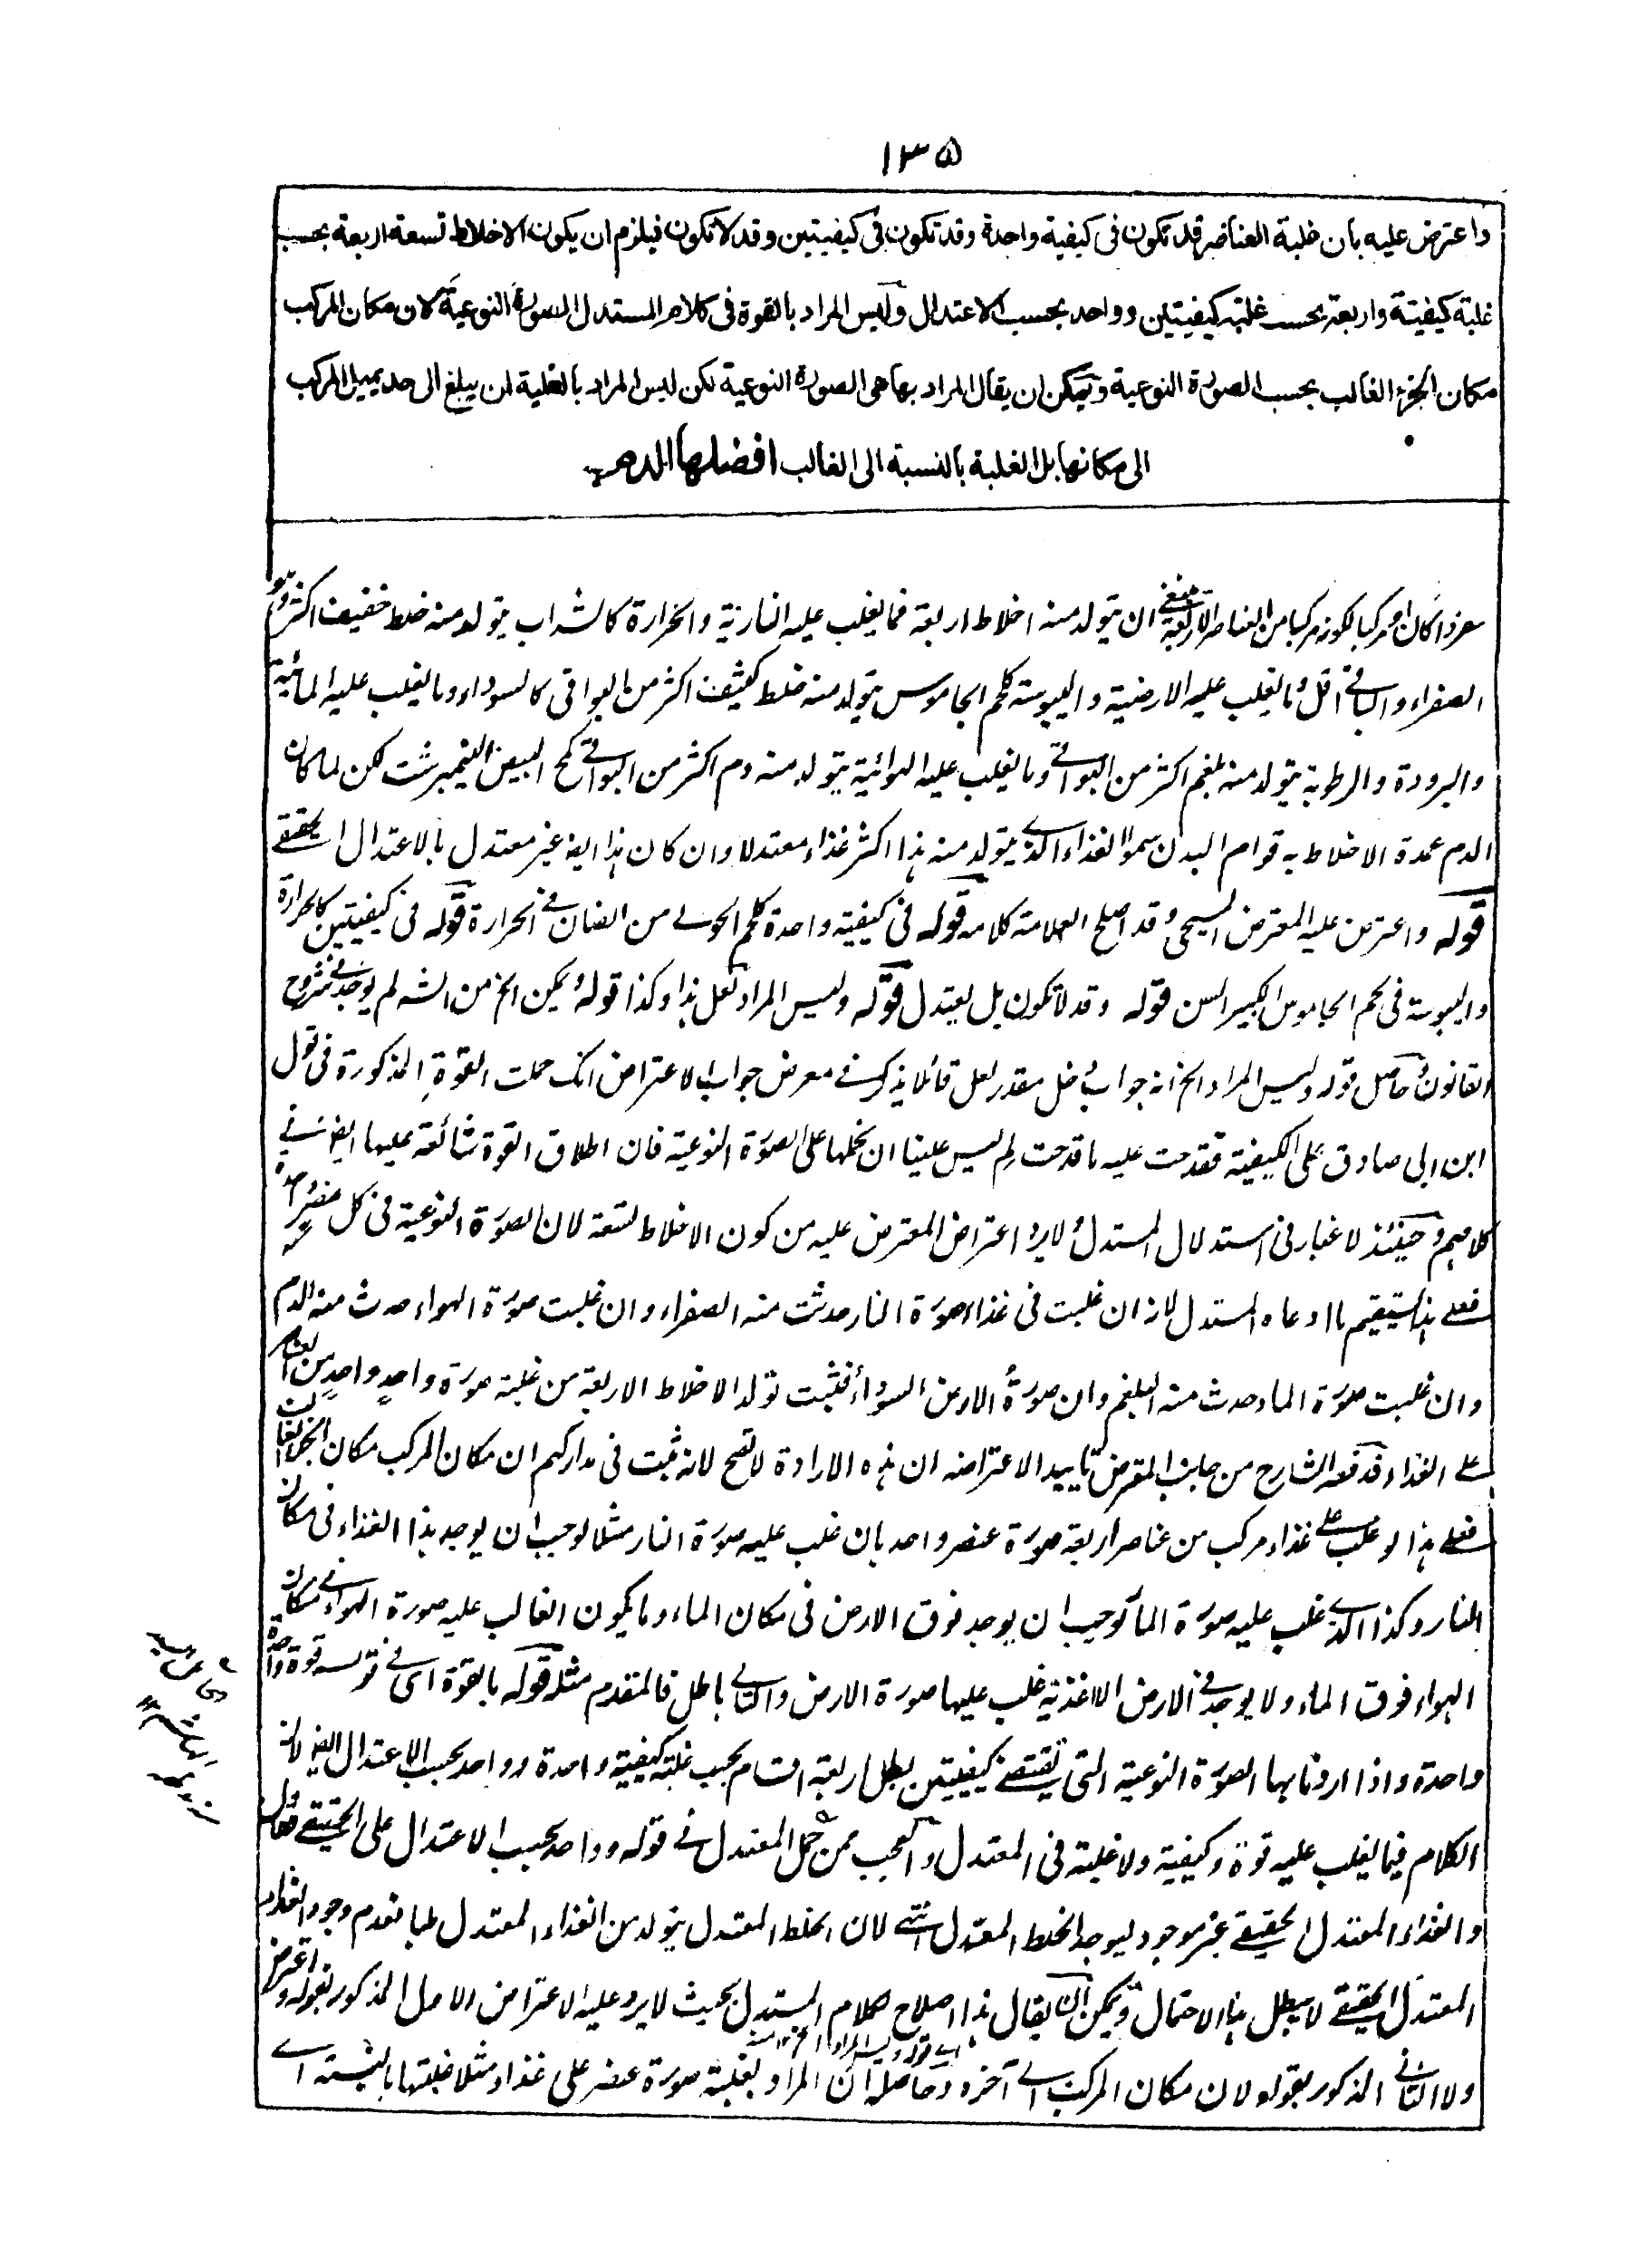 ١٣٥
واعترض عليه بأن غلبة العناصر قد تكون فى كيفية واحدة وقد تكون فى كيفيتين وقد لا تكون فيلزم ان يكون الاخلاط تسعة اربعة بحسب
غلبة كيفيتة واربعة بحسب غلبة كيفيتين وواحد بحسب الاعتدال وليس المراد بالقوة فى كلام المستدل الصورة النوعية لان مكان المركب
مكان الجزء الغالب بحسب الصورة النوعية ويمكن ان يقال المراد بها هى الصورة النوعية لكن ليس المراد بالغلبة ان يبلغ الى حد يميل المركب
الى مكانها بل الغلبة بالنسبة الى الغالب افضلها الدم
كان او مركبا لكونه مركبا من العناصر الاربعة ينبغى ان يتولد منه اخلاط اربعة فما يغلب عليه النارية والحرارة كالشراب يتولد منه خلط خفيف اكثر وهو
الصفراء والباقى اقل وما يغلب عليه الارضية واليبوسة كلحم الجاموس يتولد منه خلط كثيف اكثر من البواقى كالسوداء وما يغلب عليه المائية
والبرودة والرطوبة يتولد منه بلغم اكثر من البواقى وما يغلب عليه الهوائية يتولد منه دم اكثر من البواقى كمح البيض النيمبرشت لكن لما كان
الدم عمدة الاخلاط به قوام البدن سموا الغذاء الذى يتولد منه هذا اكثر غذاء معتدلا وان كان هذا ايضا غير معتدل بالاعتدال الحقيقى
قوله واعترض عليه المعترض المسيحى وقد اصلح العلامة كلامه قوله فى كيفية واحدة كلحم الحولى من الضان فى الحرارة قوله فى كيفيتين كالحرارة
واليبوسة فى لحم الجاموس الكبير السن قوله وقد لا تكون بل يعتدل قوله وليس المراد لعل هذا وكذا قوله ويمكن الخ من الشه لم يوجد فى شروح
القانون حاصل قوله وليس المراد الخ انه جواب دخل مقدر لعل قائلا يذكر فى معرض جواب الاعتراض انك حملت القوة المذكورة فى قول
ابن ابى صادق على الكيفية فقدحت عليه ما قدحت لم ليس علينا ان نحملها على الصورة النوعية فان اطلاق القوة شائعة عليها ايضا فى
كلامهم وحينئذ لا غبار فى استدلال المستدل ولا يرد اعتراض المعترض عليه من كون الاخلاط تسعة لان الصورة النوعية فى كل عنصر واحدة
فعلى هذا يستقيم ما ادعاه المستدل لانه ان غلبت فى غذاء صورة النار حدثت منه الصفراء وان غلبت صورة الهواء حدث منه الدم
وان غلبت صورة الماء حدث منه البلغم وان صورة الارض السوداء فثبت تولد الاخلاط الاربعة من غلبة صورة واحد واحد من العناصر
على الغذاء فدفعه الشارح من جانب المعترض تاييدا لاعتراضه ان هذه الارادة لا تصح لانه ثبت فى مدارككم ان مكان المركب مكان الجزء الغالب
فعلى هذا لو غلب على غذاء مركب من عناصر اربعة صورة عنصر واحد بان غلب عليه صورة النار مثلا لوجب ان يوجد هذا الغذاء فى مكان
النار وكذا الذى غلب عليه صورة الماء لوجب ان يوجد فوق الارض فى مكان الماء وما يكون الغالب عليه صورة الهواء فى مكان
الهواء فوق الماء ولا يوجد فى الارض الا الاغذية غلب عليها صورة الارض والتالى باطل فالمقدم مثله قوله بالقوة اى فى قوله قوة واحدة
واحدة واذا اردنا بها الصورة النوعية التى تقتضى كيفيتين بطل اربعة اقسام بحسب غلبة كيفية واحدة وواحد بحسب الاعتدال ايضا لان
الكلام فيما يغلب عليه قوة وكيفية ولا غلبة فى المعتدل والعجب ممن حمل المعتدل فى قوله وواحد بحسب الاعتدال على الحقيقى فقال
والغذاء المعتدل الحقيقى غير موجود ليوجد الخلط المعتدل انتهى لان الخلط المعتدل يتولد من الغذاء المعتدل طبا فعدم وجود الغذاء
المعتدل الحقيقى لا يبطل هذا الاحتمال قوله ويمكن ان يقال هذا اصلاح كلام المستدل بحيث لا يرد عليه الاعتراض الاول المذكور بقوله واعترض
ولا الثانى المذكور بقوله لان مكان المركب الى آخره وحاصله ان المراد بغلبة صورة عنصر على غذاء مثلا غلبتها بالنسبة الى